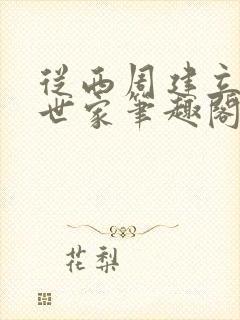 從西周建立
世家筆趣閣
花梨